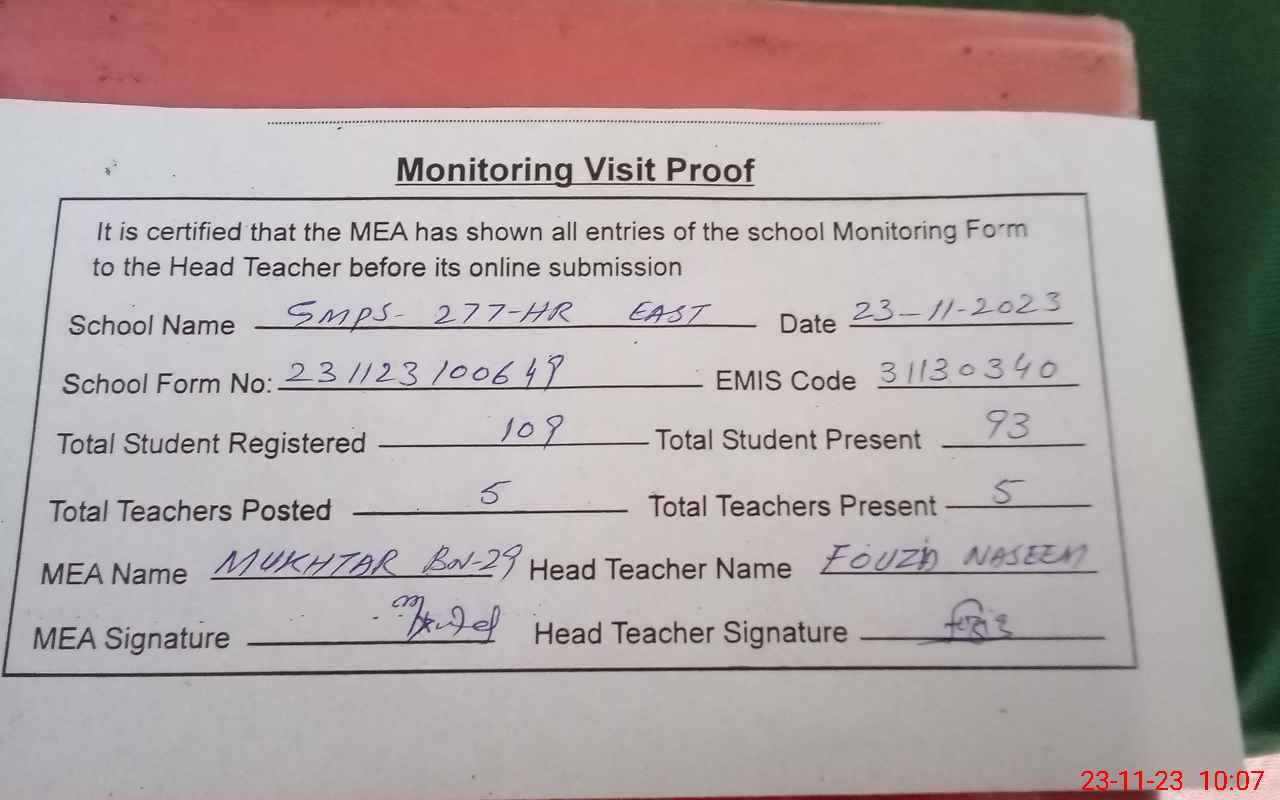 Monitoring Visit Proof
It is certified that the MEA has shown all entries of the school Monitoring Form
to the Head Teacher before its online submission
School Name GMPS- 277-HR EAST Date 23-11-2023
School Form No: 231123100649 EMIS Code 31130340
Total Student Registered 109 Total Student Present 93
Total Teachers Posted 5 Total Teachers Present 5
MEA Name MUKHTAR BW-29 Head Teacher Name FOUZIA NASEEM
MEA Signature Head Teacher Signature
23-11-23 10:07